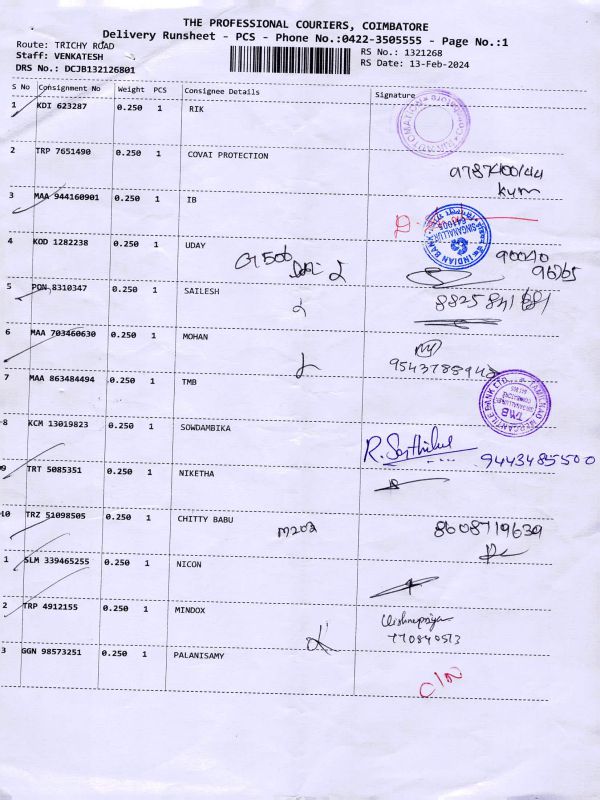 THE PROFESSIONAL COURIERS, COIMBATORE
Delivery Runsheet - PCS - Phone No.:0422-3505555 - Page No.:1
Route: TRICHY ROAD
Staff: VENKATESH
DRS No.: DCJB132126801
RS No.: 1321268
RS Date: 13-Feb-2024
S No Consignment No Weight PCS Consignee Details Signature
1 KDI 623287 0.250 1 RIK
2 TRP 7651490 0.250 1 COVAI PROTECTION
9787400144
3 MAA 944160901 0.250 1 IB
INDIAN BANK
SINGANALLUR
641005
4 KOD 1282238 0.250 1 UDAY
5 PON 8310347 0.250 1 SAILESH
6 MAA 703460630 0.250 1 MOHAN
7 MAA 863484494 0.250 1 TMB
TAMILNAD MERCANTILE BANK LTD.
TMB
8 KCM 13019823 0.250 1 SOWDAMBIKA
9443485500
9 TRT 5085351 0.250 1 NIKETHA
10 TRZ 51098505 0.250 1 CHITTY BABU
M202
8608719639
1 SLM 339465255 0.250 1 NICON
2 TRP 4912155 0.250 1 MINDOX
Vishnupriya
3 GGN 98573251 0.250 1 PALANISAMY